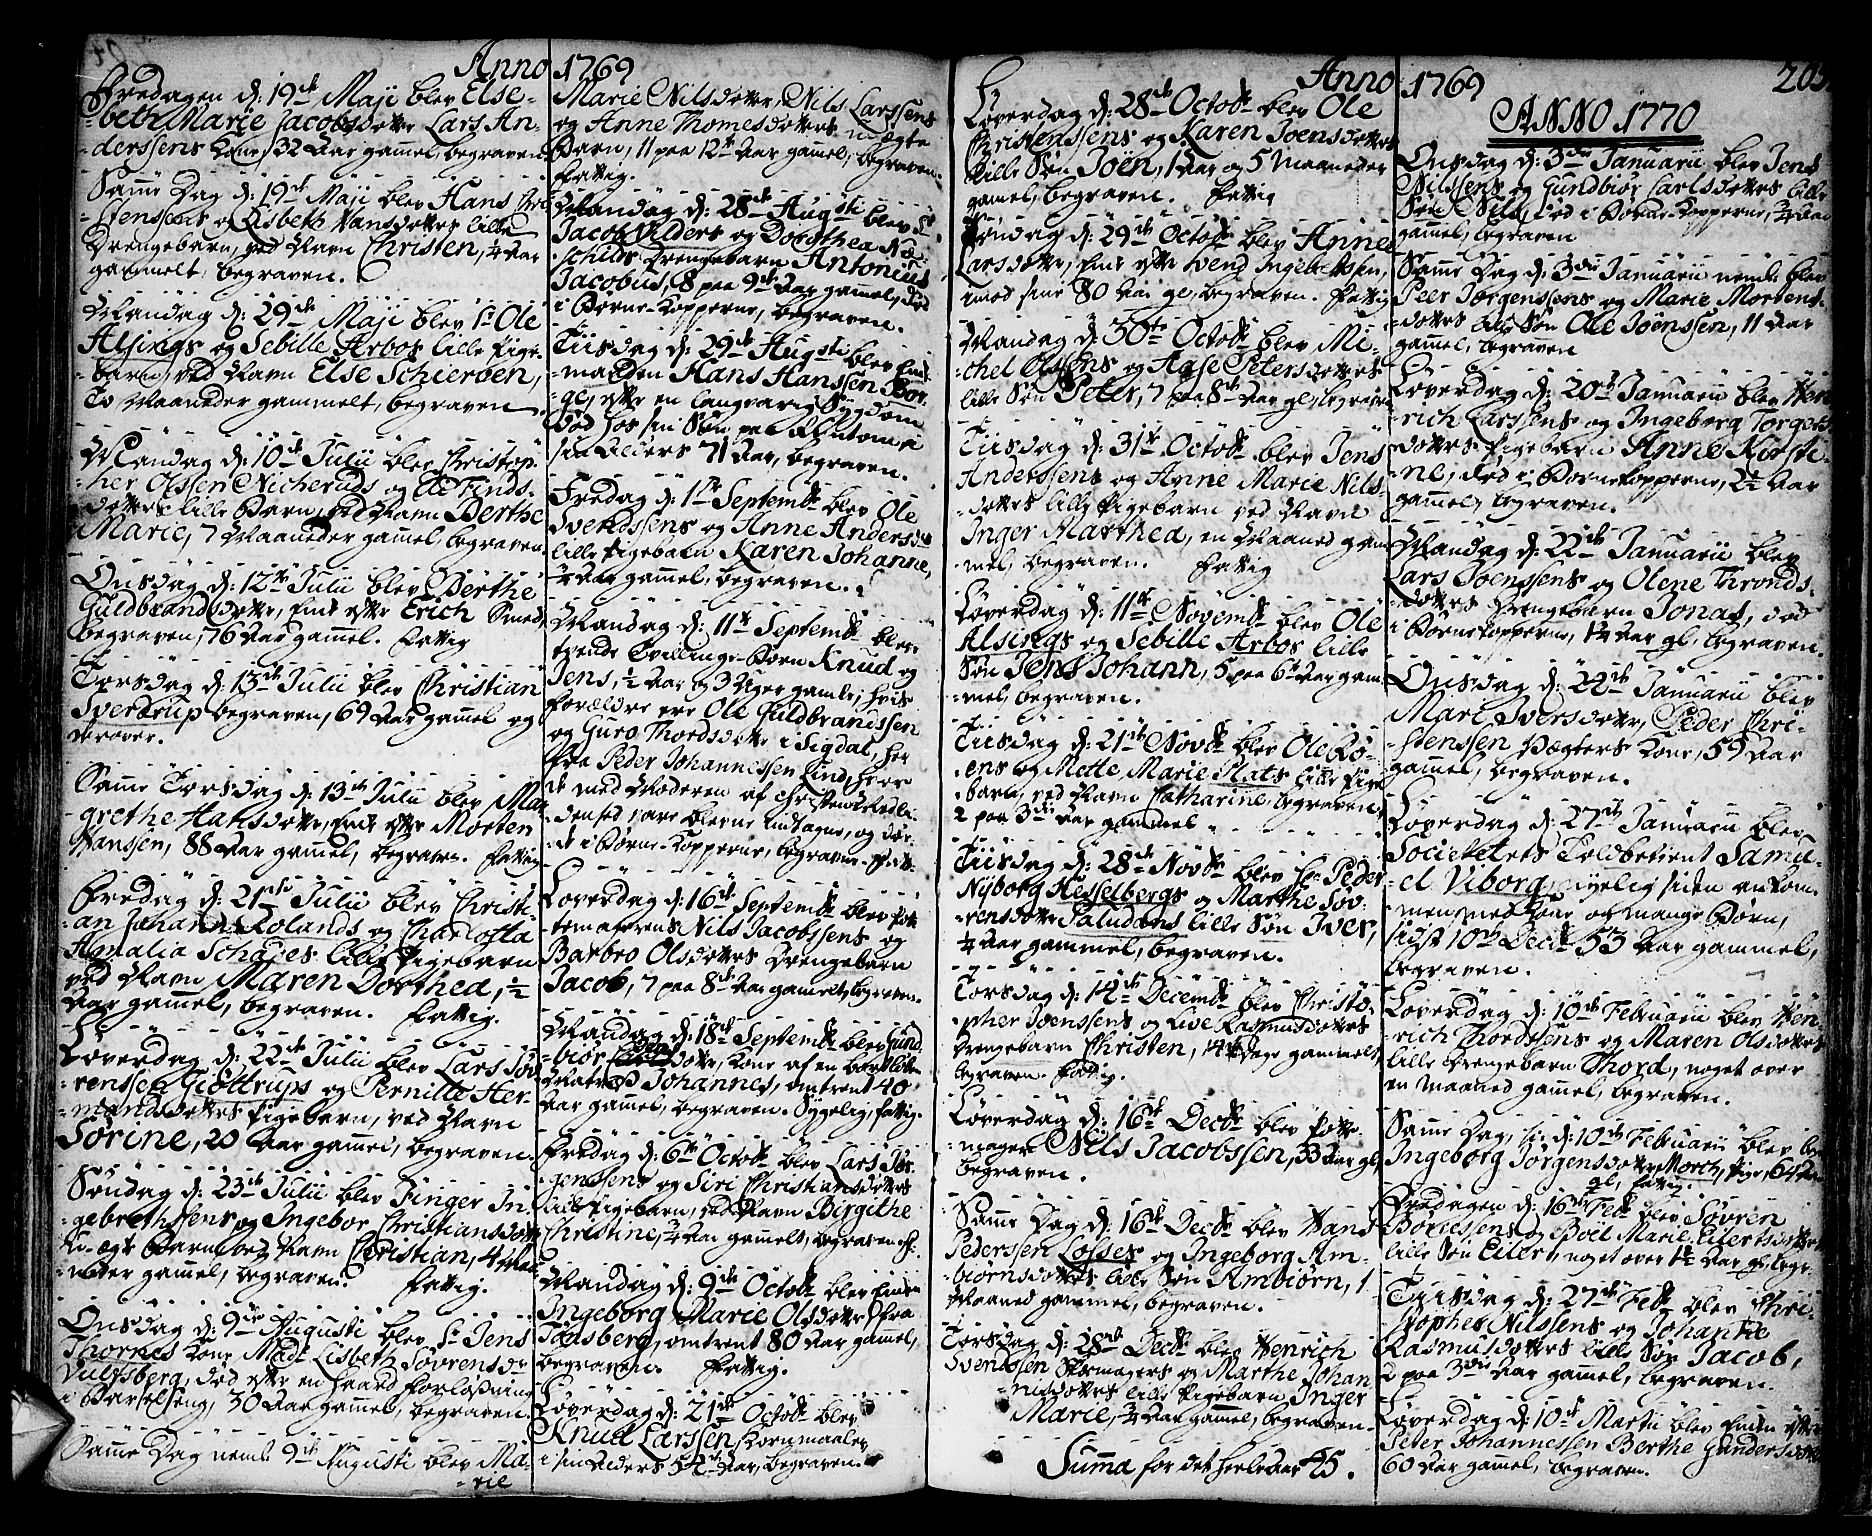 Anno 1769
Fredagen d: 19de Maji blev Else-
-beth Marie Jacobsdotter Lars An-
derssens Kone, 32 Aar gammel, begraven.
Samme Dag d: 19de Maji blev Hans
-stenssens og Lisbeth Hansdotters lille
Drengebarn, ved Navn Christen, ¼ Aar
gammelt, begraven.
Mandag d: 29de Maji blev Sr Ole
Alsings og Sebille Arbos lille Pige-
-barn, ved Navn Else Schierven,
To Maaneder gammelt, begraven.
Mandag d: 10de Julii blev Christop-
her Olssen Nicheruds og Ele Finds-
dotters lille Barn, ved Navn Berthe
Marie, 7 Maaneder gammel, begraven.
Onsdag d: 12te Julii blev Berthe
Guldbrandsdotter, Enke efter Erich Smed,
begraven, 76 Aar gammel. Fattig
Torsdag d: 13de Julii blev Christian
Sverdrup begraven, 69 Aar gammel og
derover.
Samme Torsdag d: 13de Julii blev Mar-
grethe Hansdotter, Enke efter Morten
Hanssen, 88 Aar gammel, begraven. Fattig
Fredag d: 21de Julii blev Christi-
-an Johan Rolands og Charlotta
Amalia Schades lille Pigebarn
ved Navn Maren Dorthea, ½
Aar gammel, begraven. Fattig.
Løverdag d: 22de Julii blev Lars Søv-
-renssen Giøttrups og Pernille Her-
-mandsdotters Pigebarn, ved Navn
Sørine, 20 Aar gammel, begraven.
Søndag d: 23de Julii blev Finger In-
-gebrethssens og Ingebor Christiansdotters
U-ægte Barn, ved Navn Christian, 4 Maa-
-neder gammel, begraven. Fattig.
Onsdag d: 9de Augusti blev Sr Jens
Thornes Kone Madm Lisbeth Søvrensdr
Vulfsberg, død efter en haard Forløsning
i Barselseng, 30 Aar gammel, begraven.
Samme Dag neml. 9de Augusti blev Ma-
-rie
Marie Nilsdotter, Nils Larssens
og Anne Thomesdotters uægte
Barn, 11 paa 12te Aar gammel, begraven.
Fattig.
Mandag d: 28de Augusti blev Sr
Jacob Alders og Dorothea
-schilds Drengebarn Antonius
Jacobus, 8 paa 9de Aar gammel, død
i Børne-Kopperne, begraven.
Tiisdag d: 29de Augusti blev Enke-
manden Hans Hanssen Bor-
-ge, efter en langvarig Sygdom
død hos sin Søn paa
sin Alders 71 Aar, begraven.
Fredag d: 1ste Septembr blev Ole
Svendssens og Anne Andersdr
lille Pigebarn Karen Johanne,
¼ Aar gammel, begraven.
Mandag d: 11te Septembr bleve
tvende Tvillinge-Børn Knud og
Jens, ½ Aar og 3 Uger gamle, hvis
Forældre ere Ole Guldbrandssen
og Guro Thordsdotter i Sigdal, her
fra Peder Johannessen Lind, hvor
de med Moderen af Christendoms Medli-
-denhed vare blevne indtagne, og dø-
-de i Børne-Kopperne, begravne. Fatt:
Løverdag d: 16de Septembr blev Pot-
temagerens Nils Jacobssens og
Barbro Olsdotters Drengebarn
Jacob, 7 paa 8de Aar gammelt, begraven.
Mandag d: 18de Septembr blev Gund-
-biør dotter, Kone af en bortløben
Matros Johannes, omtrent 40
Aar gammel, begraven. Sygelig, fattig.
Fredag d: 6te Octobr blev Lars Jør-
genssens og Siri Christiansdotters
lille Pigebarn, ved Navn Birgithe
Christine, ¼ Aar gammelt, begraven.
Mandag d: 9de Octobr blev Enken
Ingeborg Marie Olsdotter, fra
Tønsberg, omtrent 80 Aar gammel,
begraven. Fattig.
Løverdag d: 21de Octobr blev
Knud Larssen, Kornmaaler
i sin Alders 54de Aar, begraven.
Anno 1769
Løverdag d: 28de Octobr blev Ole
Christenssens og Karen Joensdotters
lille Søn Joen, 1 Aar og 5 Maaneder
gammel, begraven. Fattig
Søndag d: 29de Octobr blev Anne
Larsdotter, Enke efter Svend Ingebretssen,
imod sine 80 Aar gl, begraven. Fattig
Mandag d: 30te Octobr blev Mi-
-chel Olssens og Aase Petersdotters
lille Søn Peter, 7 paa 8de Aar gl, begraven
Tiisdag d: 31te Octobr blev Jens
Anderssens og Anne Marie Nils-
dotters lille Pigebarn ved Navn
Inger Marthea, en Maaned gam-
mel, begraven. Fattig
Løverdag d: 11te Novembr blev Ole
Alsings og Sebille Arbos lille
Søn Jens Johann, 5 paa 6te Aar gam-
-mel, begraven.
Tiisdag d: 21de Novbr blev Ole Rø-
-ens og Mette Marie Plats lille Pige-
-barn, ved Navn Catharine, begraven,
2 paa 3die Aar gammel
Tiisdag d: 28de Novbr blev Hr Peder
Nyborg Hesselbergs og Marthe Søv-
-rensdotter Paludans lille Søn Iver,
¼ Aar gammel, begraven.
Torsdag d: 14de Decembr blev Christo-
-pher Joenssens og Lise Rasmusdotters
Drengebarn Christen, 14 Dage gammelt,
begraven. Fattig.
Løverdag d: 16de Decbr blev Potte-
-mager Nils Jacobssen, 33 Aar gl,
begraven.
Samme Dag d: 16de Decbr blev Hans
Pederssen Losses og Ingeborg Am-
-biørnsdotters lille Søn Ambiørn, 1
Maaned gammel, begraven.
Torsdag d: 28de Decbr blev Henrich
Svenssen Skomagers og Marthe Johan-
-nisdotters lille Pigebarn Inger
Marie, ¼ Aar gammel, begraven.
Summa for det heele Aar 45.
1769
203
ANNO 1770
Onsdag d: 3die Januarii blev Jens
Nilssens og Gundbiør Carlsdotters lille
Søn Nils, død i Børne-Kopperne, ¾ Aar
gammel, begraven
Samme Dag d: 3die Januarii neml. blev
Peer Jørgenssens og Marie Mortens-
-dotters lille Søn Ole Joenssen, 11 Aar
gammel, begraven
Løverdag d: 20de Januarii blev Hen-
rich Larssens og Ingeborg Torgers-
-dotters Pigebarn Anne Kirsti-
-ne, død i Børnekopperne, 2½ Aar
gammel, begraven.
Mandag d: 22de Januarii blev
Lars Joenssens og Olene Thronds-
-dotters Drengebarn Jonas, død
i Børnekopperne, 1¼ Aar gl, begraven.
Onsdag d: 24de Januarii blev
Mari Iversdotter, Peder Chri-
-stenssen Vægters Kone, 59 Aar
gammel, begraven.
Løverdag d: 27de Januarii blev
Societetets Toldbetient Samu-
el Viborg, nyelig siden ankom-
men med Kone og mange Børn,
sidst 10de Decbr 53 Aar gammel,
begraven.
Løverdag d: 10de Februarii blev Hen-
rich Thordssens og Maren Olsdotters
lille Drengebarn Thord, noget over
en Maaned gammel, begraven.
Samme Dag, d: 10de Februarii blev
Ingeborg Jørgensdotter Morch, Pige, 64 Aar
gl, fattig.
Fredagen d: 16de Febr blev Søvren
Børresens og Boel Marie Eilertsdotters
lille Søn Eilert, noget over 1½ Aar gl, begr.
Tiisdag d: 27de Febr blev Chri-
stopher Nilssens og Johanne
Rasmusdotters lille Søn Jacob,
2 paa 3die Aar gammel, begraven.
Løverdag d: 10de Martii blev Enken efter
Peter Johannessen Berthe Gundersdotter
60 Aar gammel, begraven.